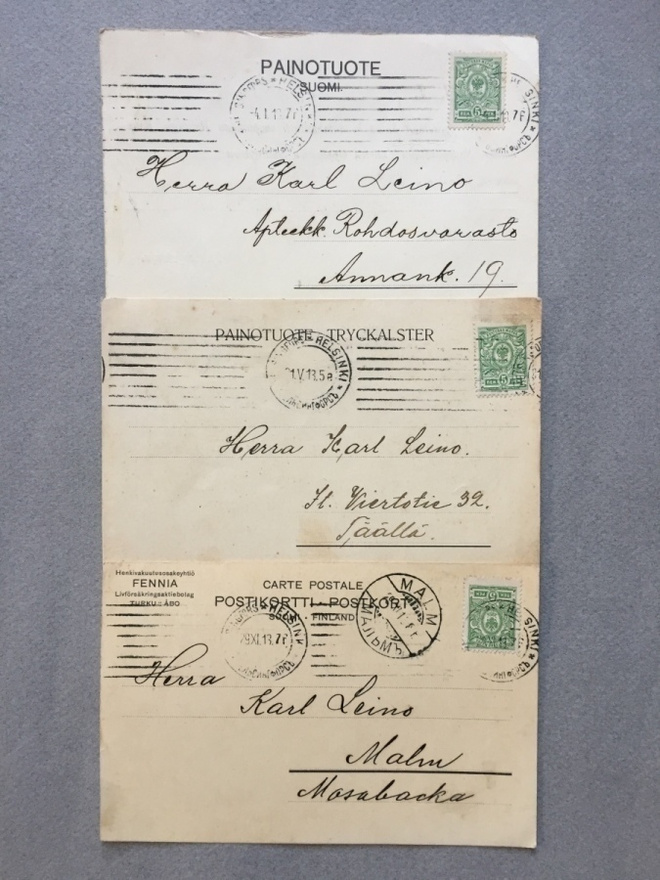 PAINOTUOTE
SUOMI.
HELSIN
4.1.13.7
5
SINKI
Herra Karl Leino
Apteekk. Rohdosvarasto
Annank. 19.
PAINOTUOTE - TRYCKALSTER
HELSINKI
1.V.13.5
5
Herra Karl Leino.
It. Viertotie 32.
Täällä.
Henkivakuutusosakeyhtiö
FENNIA
Livförsäkringsaktiebolag
TURKU - ÅBO
CARTE POSTALE
POSTIKORTTI - POSTKORT
FINLAND
HELSINKI
29.XI.13.7
MALM
МАЛЬМЪ
5
SINKI
Herra
Karl Leino
Malm
Mosabacka